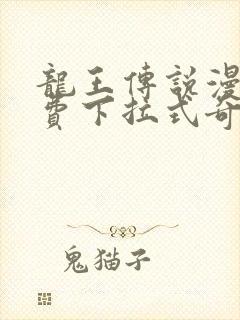 龍王傳說漫
費下拉式奇
鬼猫子